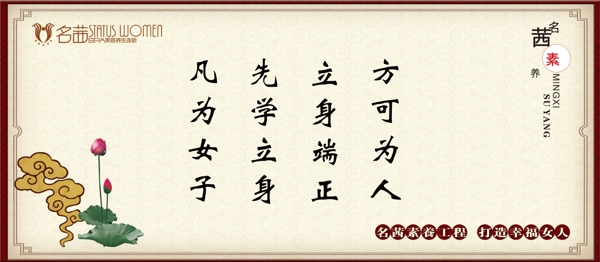 名茜 STATUS WOMEN
SPA美容养生连锁
名茜
素养
MINGXI
SU YANG
凡为女子
先学立身
立身端正
方可为人
名茜素養工程 打造幸福女人